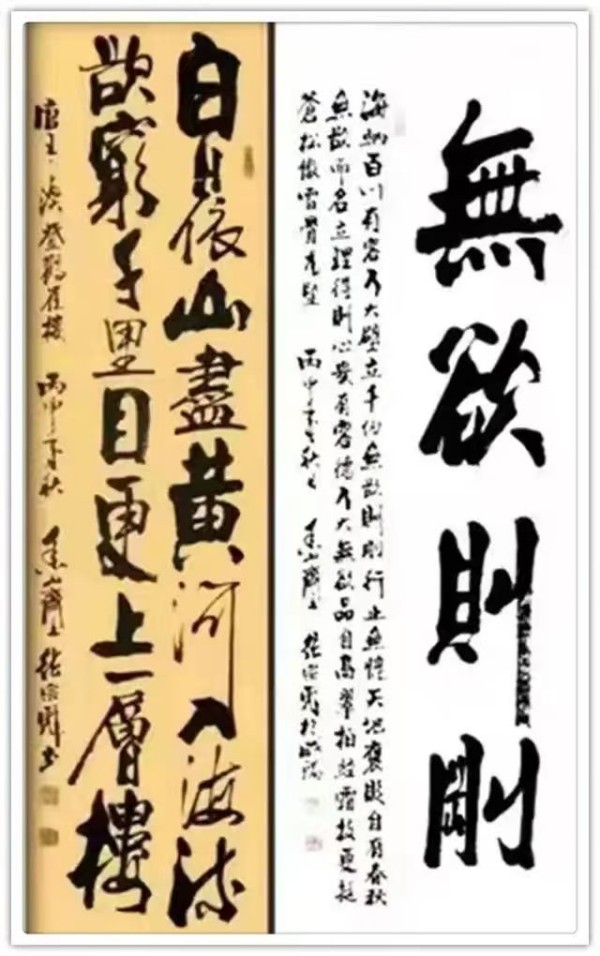 無欲則剛
海納百川有容乃大壁立千仞無欲則剛行止無愧天地褒貶自有春秋
無欲而名立理得則心安有容德乃大無欲品自高翠柏霜枝更挺
蒼松傲雪骨尤堅 丙申年秋月
白日依山盡黄河入海流
欲窮千里目更上一層樓
唐王之渙登鸛雀樓 丙申年秋 書